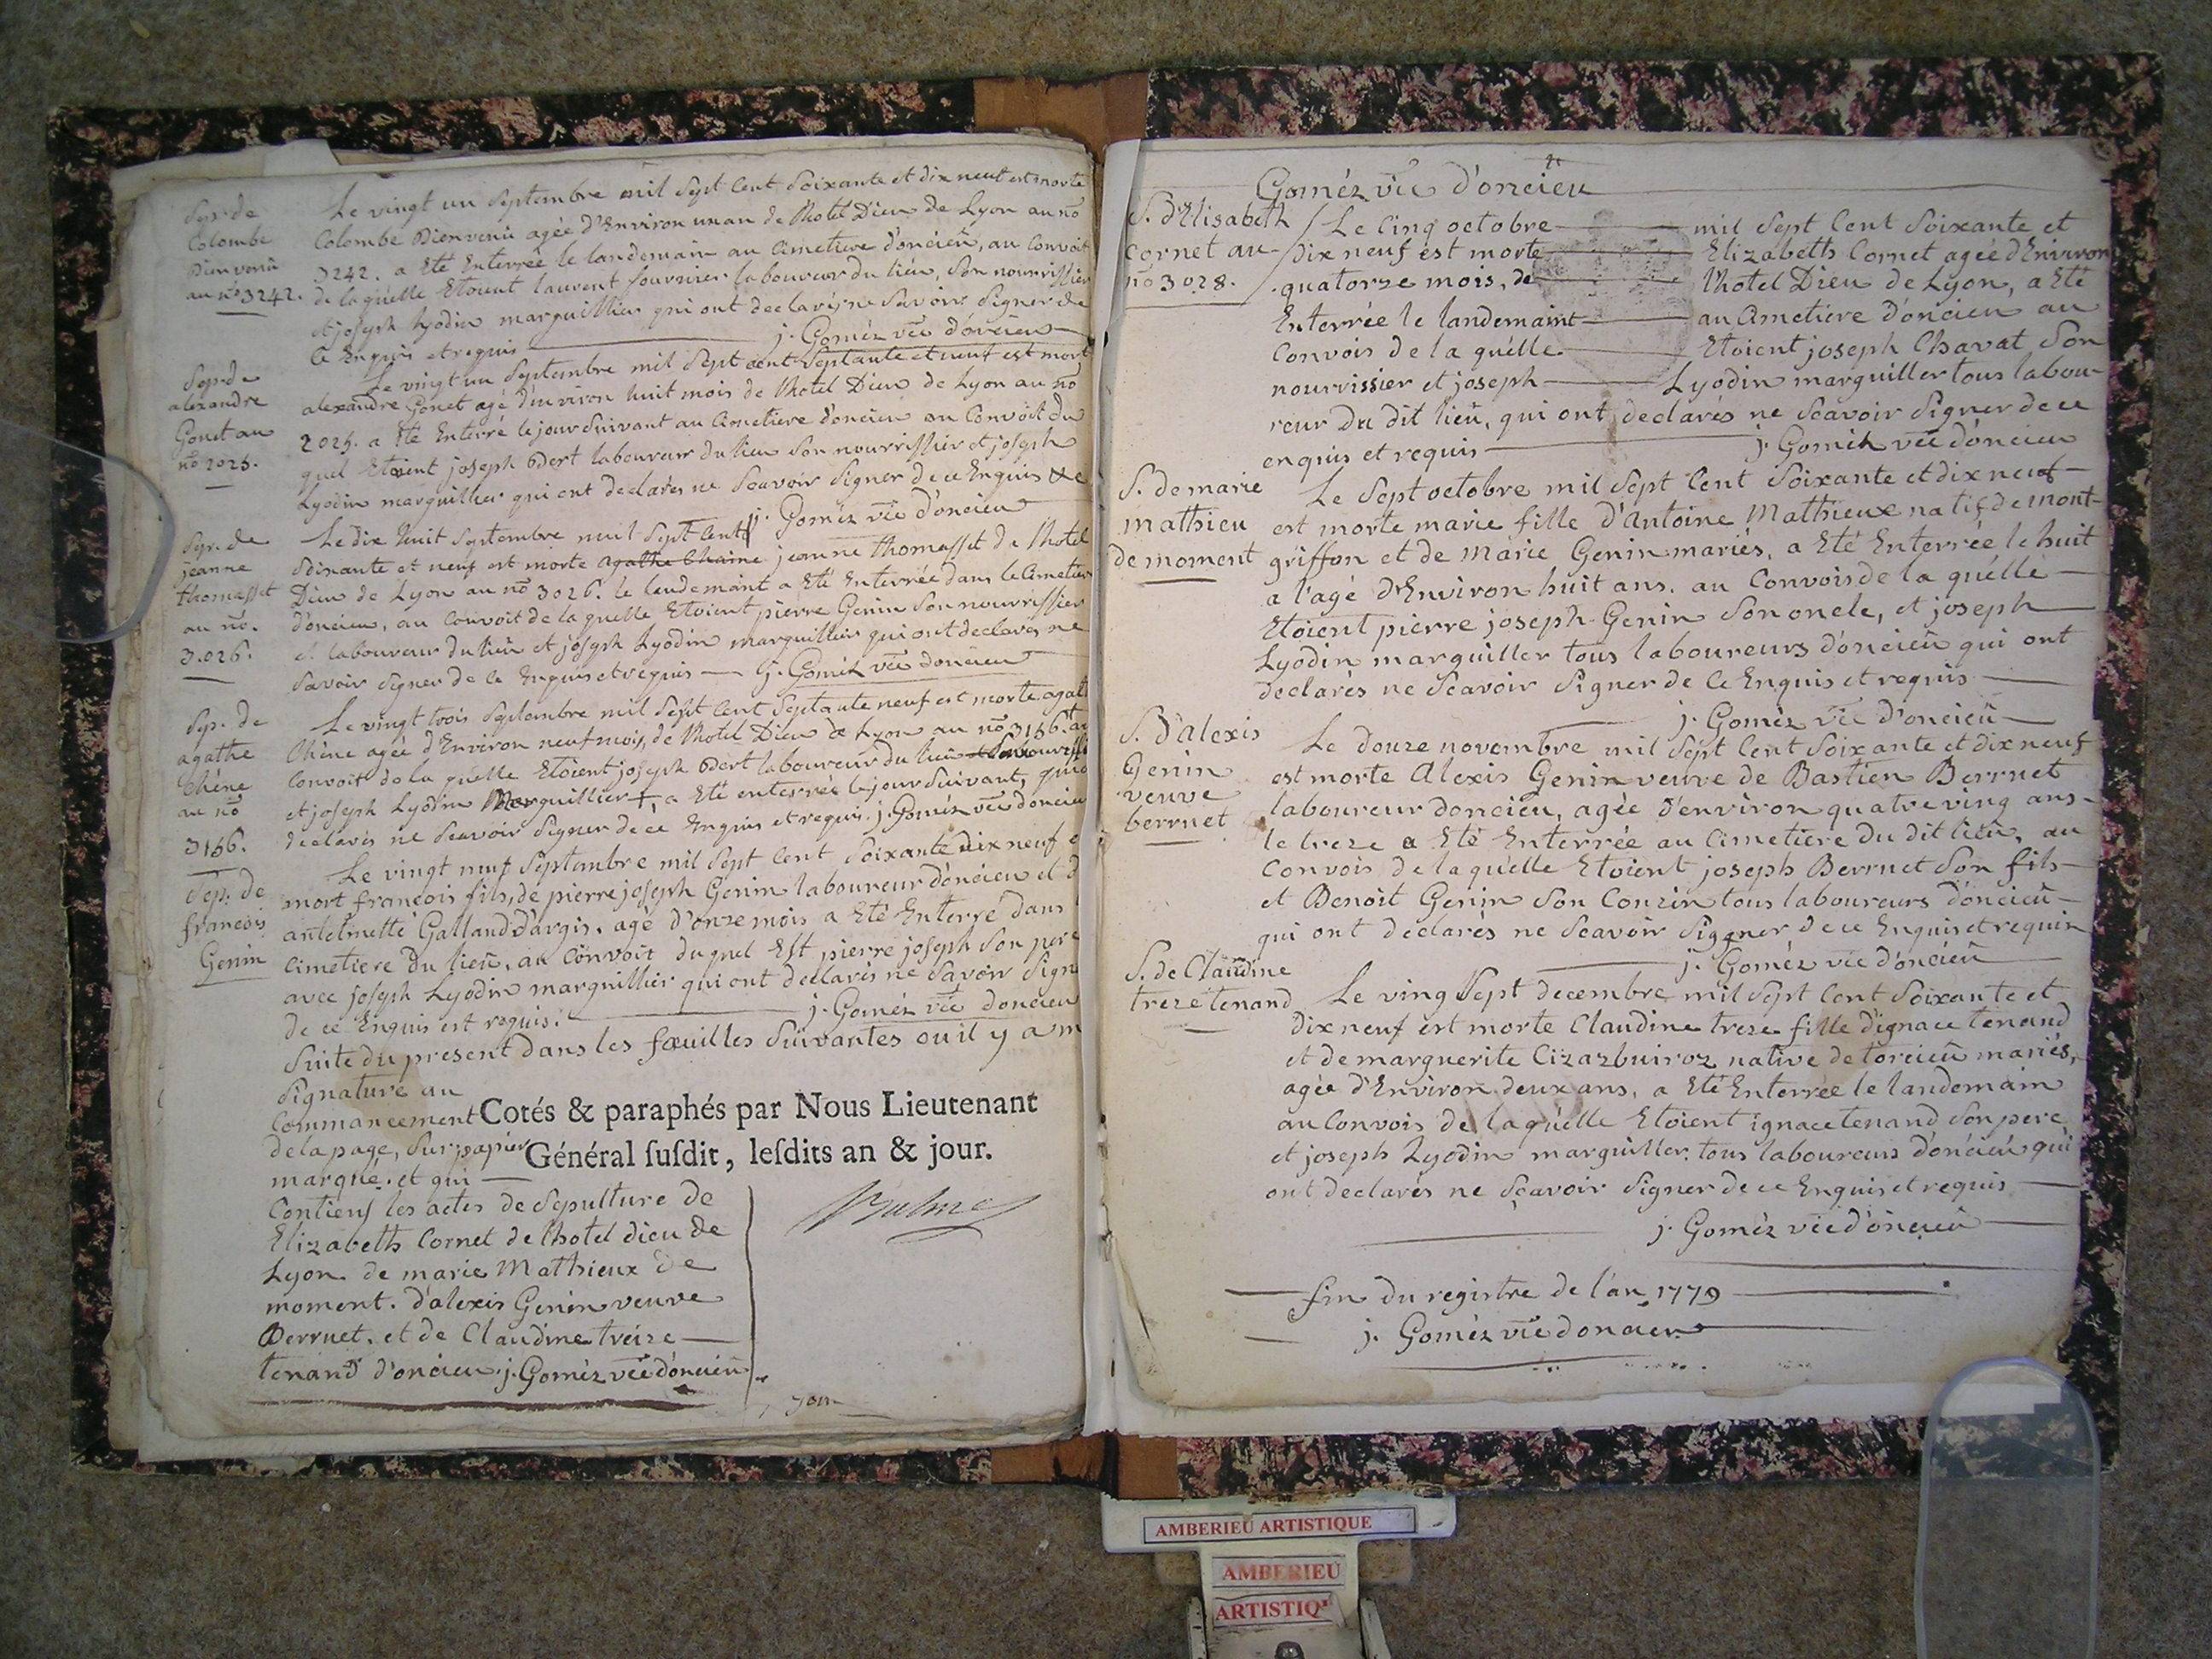 Sep.re de
Colombe
Bienvenü
au no 3242.
Le vingt un Septembre mil Sept Cent Soixante et dix neuf est morte
Colombe Bienvenüe agée d'Environ un an de l'hotel Dieu de Lyon au no
3242. a Eté Enterrée le landemain au Cimetiere d'oncieu, au Convoit
de la quelle Etoient laurent fournier laboureur du lieu, Son nourrissier
et joseph Lyodin marguillier qui ont declarés ne Savoir Signer de
Ce Enquis et requis j. Goméz vic d'oncieu
Sep. de
alexandre
Gonet au
no 2025.
Le vingt un Septembre mil Sept cent Septante et neuf est mort
alexandre Gonet agé d'environ huit mois de l'hotel Dieu de Lyon au no
2025. a Eté Enterré le jour Suivant au Cimetiere d'oncieu au Convoit du
quel Etoient joseph Bert laboureur du lieu Son nourrissier et joseph
Lyodin marguillier qui ont declarés ne Scavoir Signer de ce Enquis &c
j. Goméz vic d'oncieu
Sep. de
jeanne
thomasset
au no.
3.026.
Le dix huit Septembre mil Sept Cent
Soixante et neuf est morte agathe Chaine jeanne thomasset de l'hotel
Dieu de Lyon au no 3026. le lendemant a Eté Enterrée dans le Cimetiere
d'oncieu, au Convoit de la quelle Etoient pierre Genin Son nourrissier
et laboureur du lieu et joseph Lyodin marguillier qui ont declarés ne
Savoir Signer de Ce Enquis et requis j. Goméz vic doncieu
Sep. de
agathe
Chêne
au no
3166.
Le vingt trois Septembre mil Sept Cent Septante neuf est morte agathe
Chêne agée d'Environ neuf mois, de l'hotel Dieu de Lyon au no 3166. au
Convoit de la quelle Etoient joseph Bert laboureur du lieu
et joseph Lyodin Marguillier +, a Eté enterrée le jour Suivant, qui
declarés ne Scavoir Signer de ce Enquis et requis. j. Goméz vic doncieu
Sép. de
francois
Genin
Le vingt neuf Septembre mil Sept Cent Soixante dix neuf
mort francois fils, de pierre joseph Genin laboureur d'oncieu et d
antelmette Galland d'argis. agé d'onze mois a Eté Enterré dans
Cimetiere du lieu, au Convoit du quel Est pierre joseph Son pere
avec joseph Lyodin marguillier qui ont declarés ne Savoir Signe
de ce Enquis est requis. j. Goméz vic doncieu
Suite du present dans les fœuilles Suivantes ou il y a m
Signature au
Commancement
de la page, Sur papier
marqué. et qui
Contiens les actes de Sepulture de
Elizabeth Cornet de l'hotel dieu de
Lyon de marie Mathieux de
moment. d'alexis Genin veuve
Berruet. et de Claudine treize
tenand d'oncieu. j. Goméz vic d'oncieu
Cotés & paraphés par Nous Lieutenant
Général ſuſdit, leſdits an & jour.
Goméz vic d'oncieu
S. d'Elisabeth
Cornet au
no 3028.
Le Cinq octobre mil Sept Cent Soixante et
Dix neuf est morte Elizabeth Cornet agée d'Environ
quatorze mois, de l'hotel Dieu de Lyon, a Eté
Enterrée le landemaint au Cimetiere d'oncieu au
Convois de la quélle Etoient joseph Chavat Son
nourrissier et joseph Lyodin marguiller tous labou-
reur du dit lieu, qui ont declarés ne Scavoir Signer de ce
enquis et requis j. Goméz vic d'oncieu
S. de marie
mathieu
de moment
Le Sept octobre mil Sept Cent Soixante et dix neuf
est morte marie fille d'Antoine Mathieux natif de mont-
griffon et de Marie Genin mariés, a Eté Enterrée le huit
a l'agé d'Environ huit ans. au Convois de la quélle
Etoient pierre joseph Genin Son oncle, et joseph
Lyodin marguiller tous laboureurs d'oncieu qui ont
declarés ne Scavoir Signer de Ce Enquis et requis
j. Goméz vic d'oncieu
S. d'alexis
Genin
veuve
berruet
Le douze novembre mil Sept Cent Soixante et dix neuf
est morte Alexis Genin veuve de Bastien Berruet
laboureur doncieu, agée d'environ quatre ving ans
le treze a Eté Enterrée au Cimetiere du dit lieu, au
Convois de la quélle Etoient joseph Berruet Son fils
et Benoit Genin Son Couzin tous laboureurs d'oncieu
qui ont declarés ne Scavoir Signer de ce Enquis et requis
j. Goméz vic d'oncieu
S. de Claudine
treze tenand
Le ving Sept decembre mil Sept Cent Soixante et
dix neuf est morte Claudine treze fille d'ignace tenand
et de marguerite Cizazbuiroz native de torcieu mariés,
agée d'Environ deux ans, a Eté Enterrée le landemain
au Convois de la quélle Etoient ignace tenand Son pere
et joseph Lyodin marguiller. tous laboureurs d'oncieu qui
ont declarés ne Sçavoir Signer de ce Enquis et requis
j. Goméz vic d'oncieu
fin du registre de l'an 1779
j. Goméz vic doncieu
AMBERIEU ARTISTIQUE
AMBERIEU
ARTISTIQ